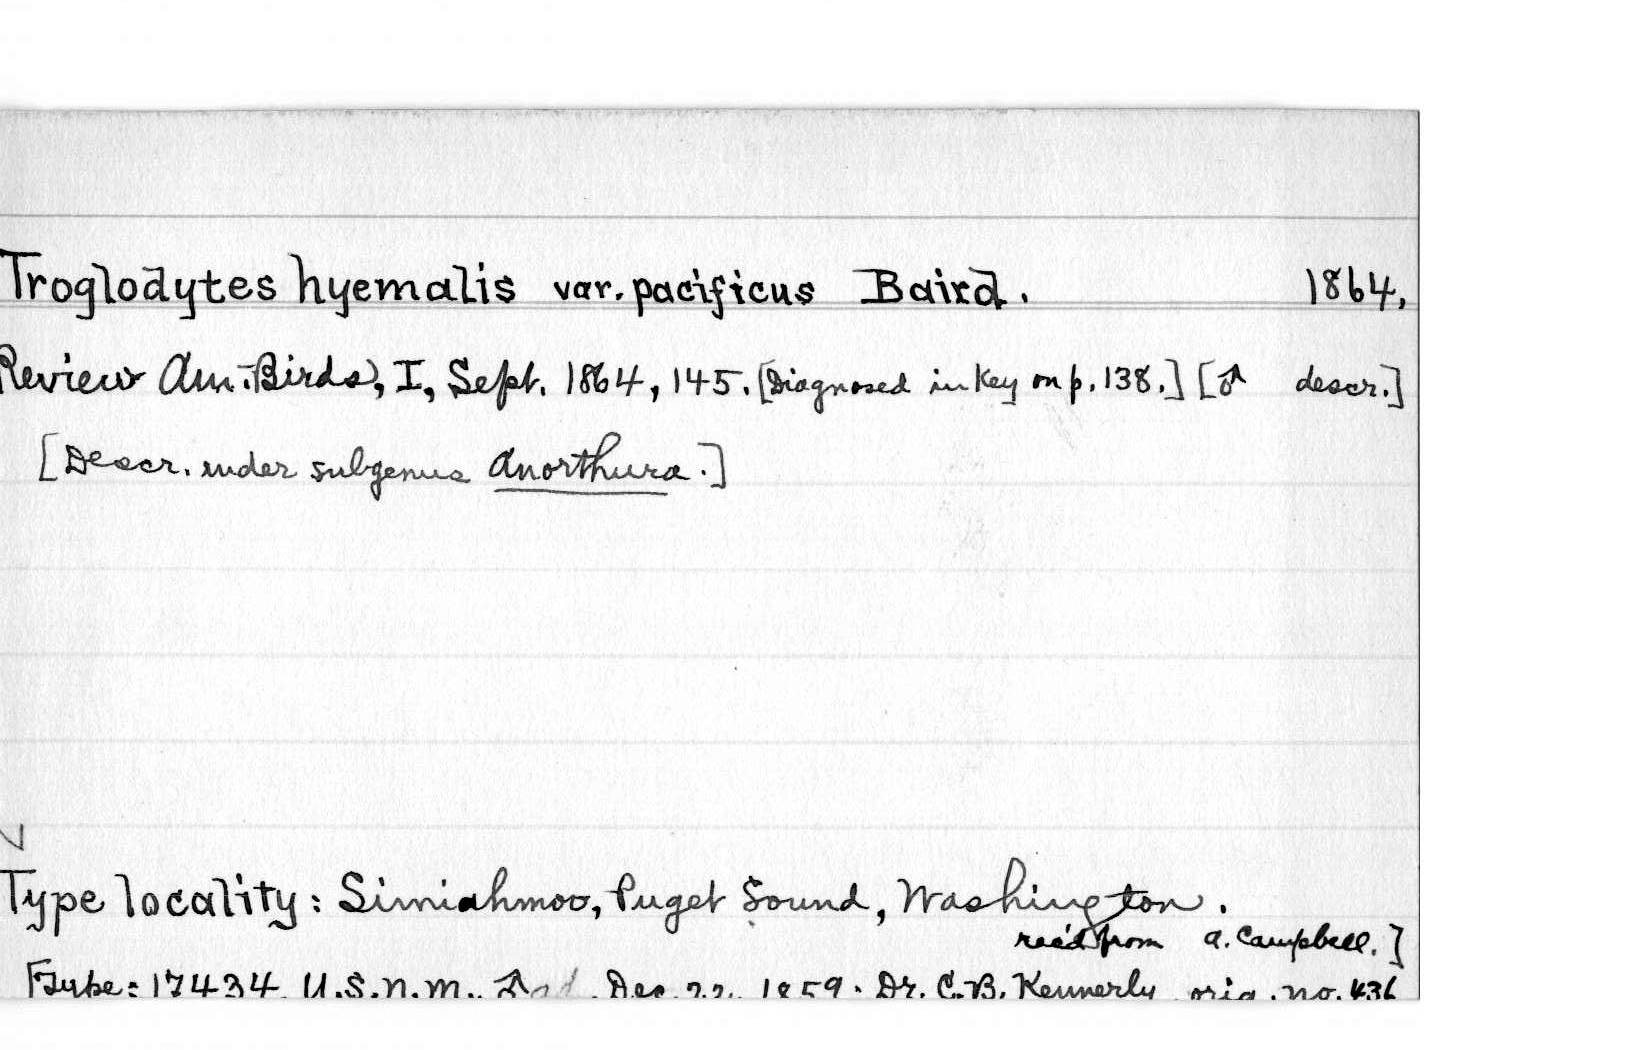 Troglodytes hyemalis var. pacificus Baird. 1864,
Review Am. Birds, I, Sept. 1864, 145. [Diagnosed in key on p. 138.] [♂ descr.]
[Descr. under subgenus Anorthura.]
Type locality: Simiahmoo, Puget Sound, Washington.
rec'd from A. Campbell.]
[Type: 17434, U.S.N.M., ♂ ad., Dec. 22, 1859. Dr. C.B. Kennerly orig. no. 436